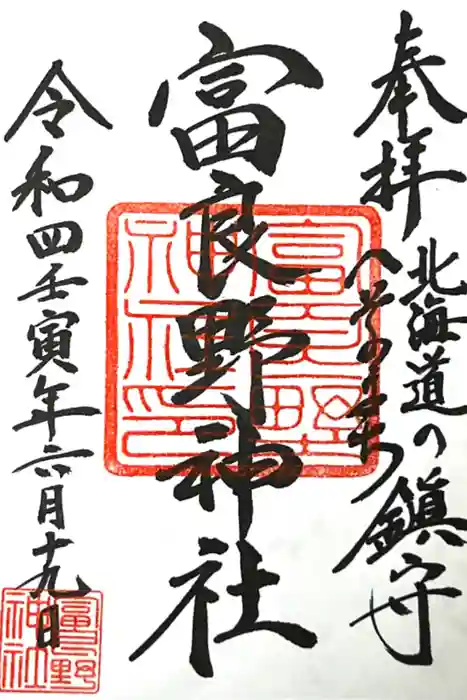 奉拝
北海道の
へそのまち
鎮守
富良野神社
富良野神社印
令和四壬寅年六月十九日
富良野神社